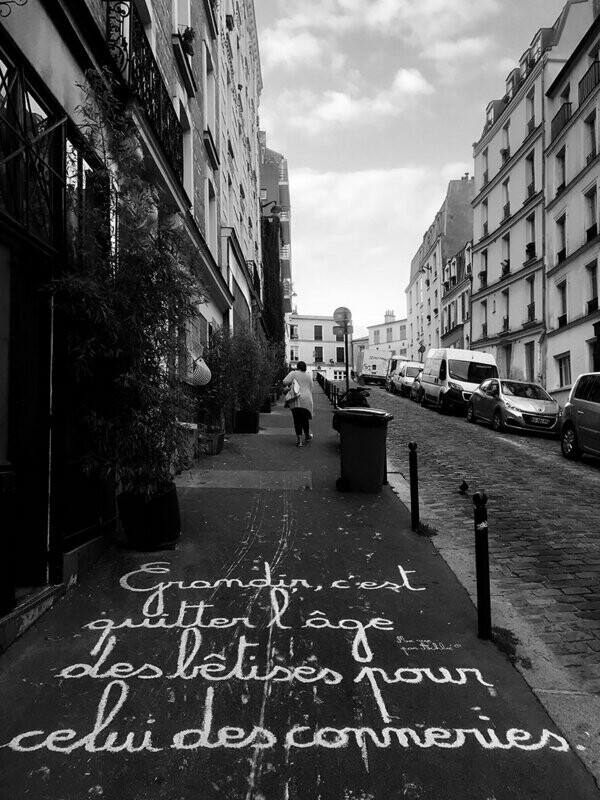 Grandir, c'est
quitter l'âge
des bêtises pour
celui des conneries.